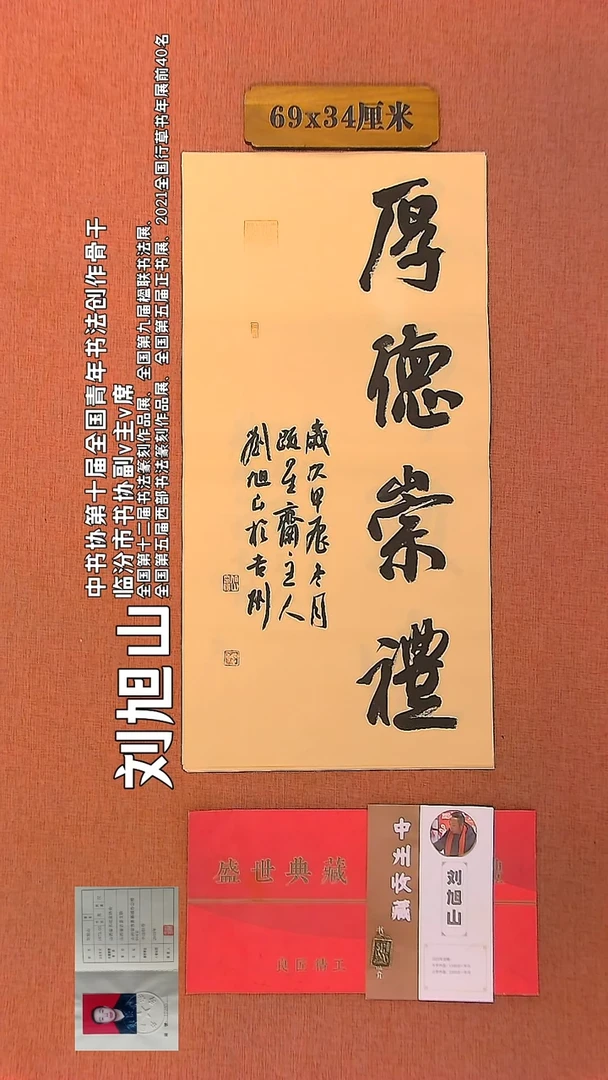 69x34厘米
厚德崇禮
歲次甲辰冬月
齋主人
劉旭山於吉州
刘旭山
中书协第十届全国青年书法创作骨干
临汾市书协副v主v席
全国第十二届书法篆刻作品展、全国第九届楹联书法展、
全国第五届西部书法篆刻作品展、全国第五届正书展、2021全国行草书年展前40名
盛世典藏
中州收藏
刘旭山